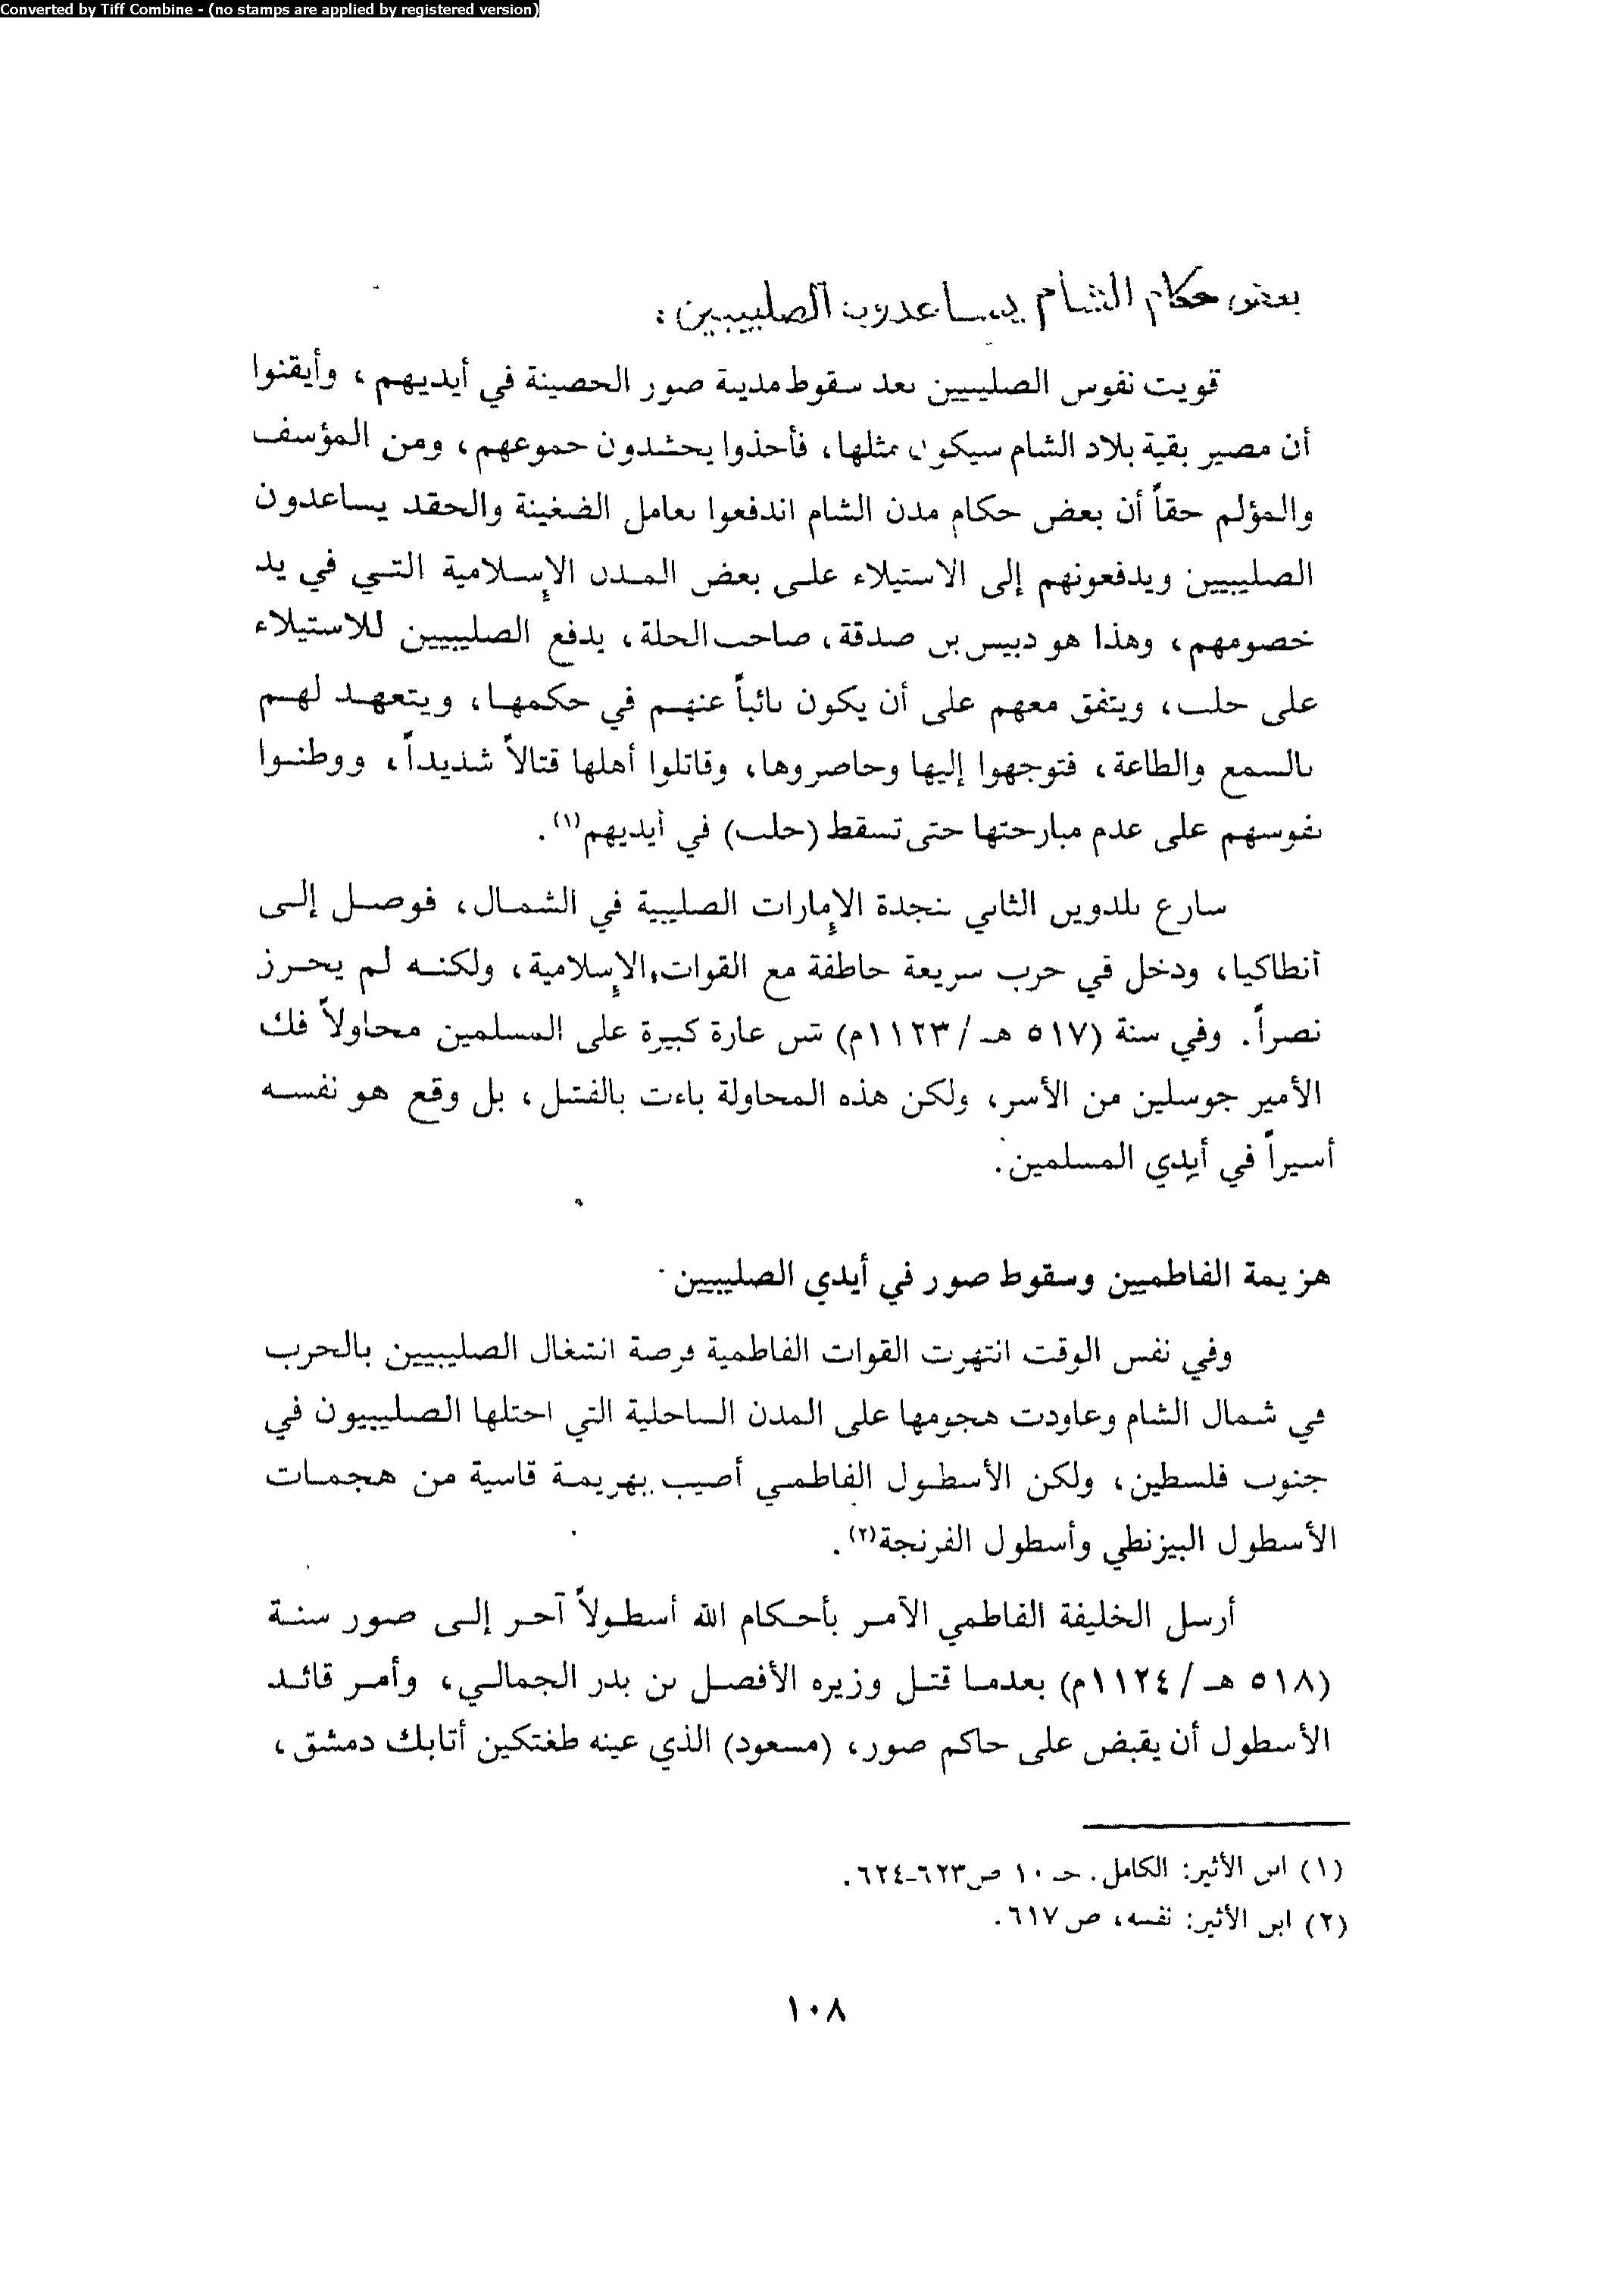 Converted by Tiff Combine - (no stamps are applied by registered version)
بعض حكام الشام يساعدون الصليبيين :
قويت نفوس الصليبيين بعد سقوط مدينة صور الحصينة في أيديهم ، وأيقنوا
أن مصير بقية بلاد الشام سيكون مثلها، فأخذوا يحشدون جموعهم، ومن المؤسف
والمؤلم حقاً أن بعض حكام مدن الشام اندفعوا بعامل الضغينة والحقد يساعدون
الصليبيين ويدفعونهم إلى الاستيلاء على بعض المدن الإسلامية التي في يد
خصومهم، وهذا هو دبيس بن صدقة، صاحب الحلة، يدفع الصليبيين للاستيلاء
على حلب، ويتفق معهم على أن يكون نائباً عنهم في حكمها، ويتعهد لهم
بالسمع والطاعة، فتوجهوا إليها وحاصروها، وقاتلوا أهلها قتالاً شديداً، ووطنوا
نفوسهم على عدم مبارحتها حتى تسقط (حلب) في أيديهم(١).
سارع بلدوين الثاني بنجدة الإمارات الصليبية في الشمال، فوصل إلى
أنطاكيا، ودخل في حرب سريعة خاطفة مع القوات الإسلامية، ولكنه لم يحرز
نصراً. وفي سنة (٥١٧ هـ / ١١٢٣م) شن غارة كبيرة على المسلمين محاولاً فك
الأمير جوسلين من الأسر، ولكن هذه المحاولة باءت بالفشل، بل وقع هو نفسه
أسيراً في أيدي المسلمين.
هزيمة الفاطميين وسقوط صور في أيدي الصليبيين ·
وفي نفس الوقت انتهرت القوات الفاطمية فرصة انشغال الصليبيين بالحرب
في شمال الشام وعاودت هجومها على المدن الساحلية التي احتلها الصليبيون في
جنوب فلسطين، ولكن الأسطول الفاطمي أصيب بهزيمة قاسية من هجمات
الأسطول البيزنطي وأسطول الفرنجة(٢).
أرسل الخليفة الفاطمي الآمر بأحكام الله أسطولاً آخر إلى صور سنة
(٥١٨ هـ / ١١٢٤م) بعدما قتل وزيره الأفضل بن بدر الجمالي، وأمر قائد
الأسطول أن يقبض على حاكم صور، (مسعود) الذي عينه طغتكين أتابك دمشق،
(١) ابن الأثير: الكامل. جـ ١٠ ص٦٢٣-٦٢٤.
(٢) ابن الأثير: نفسه، ص ٦١٧.
١٠٨